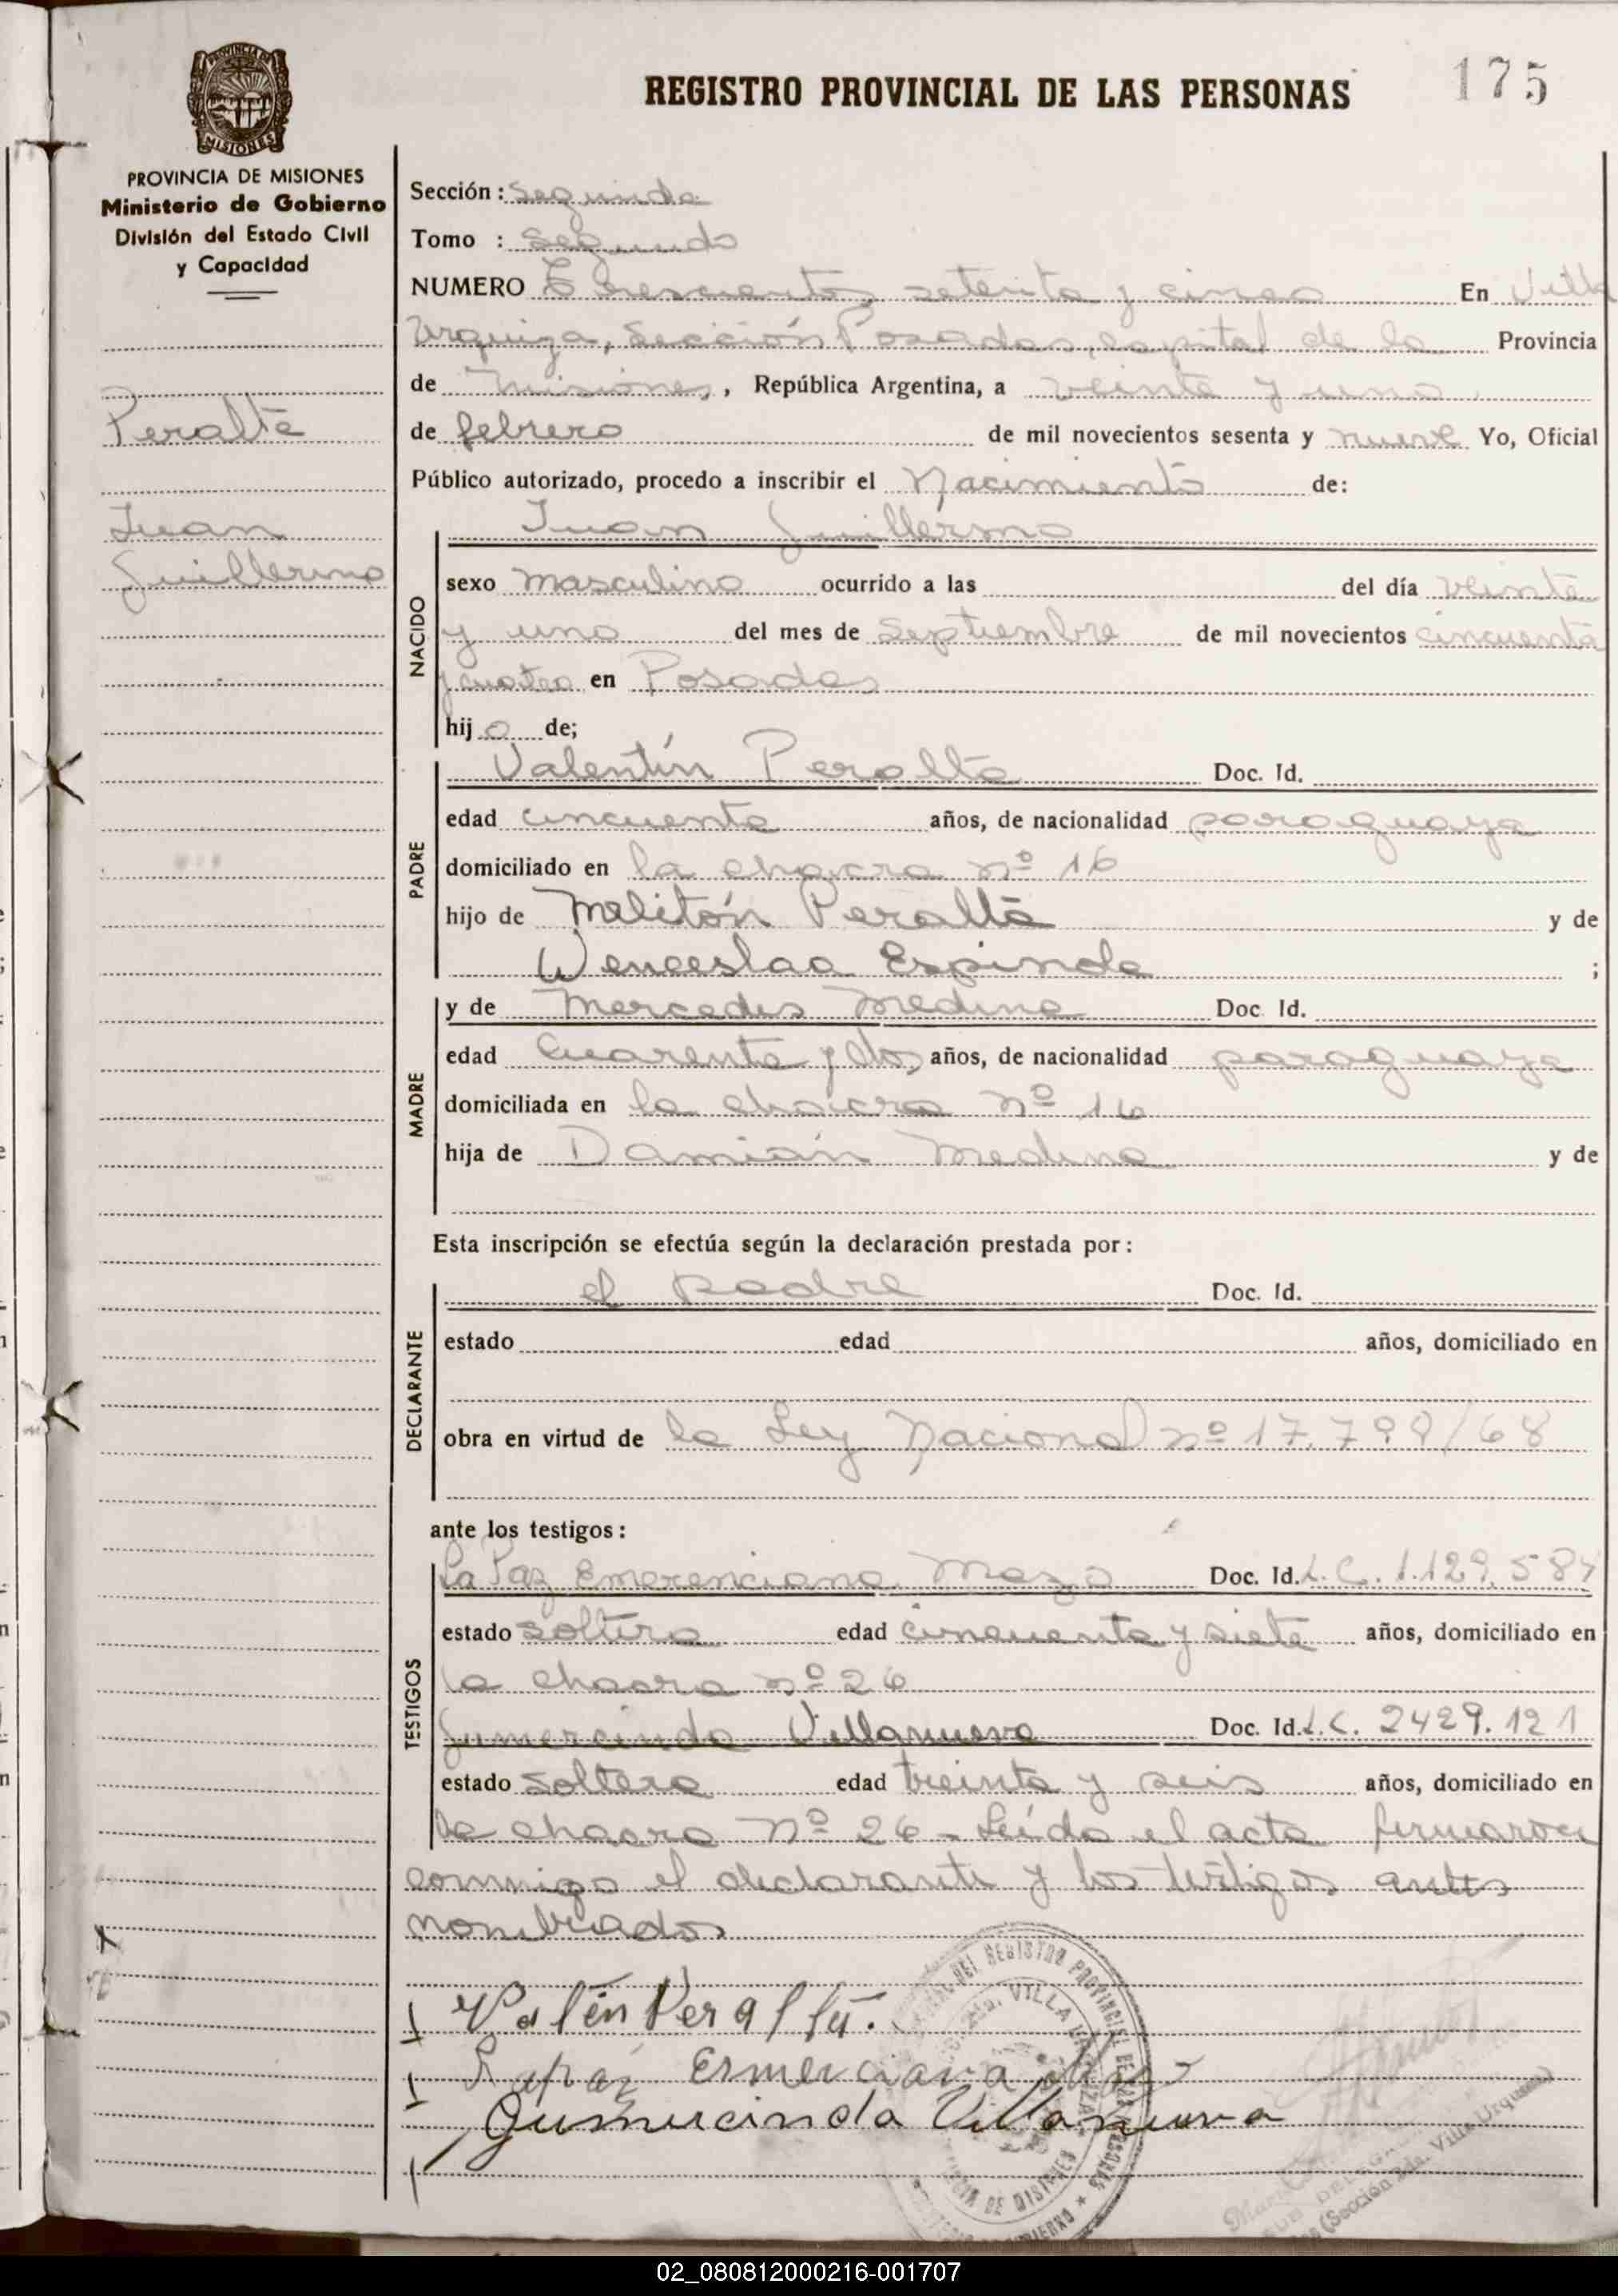 REGISTRO PROVINCIAL DE LAS PERSONAS
175
PROVINCIA DE MISIONES
MISIONES
PROVINCIA DE MISIONES
Ministerio de Gobierno
División del Estado Civil
y Capacidad
Peralta
Juan
Guillermo
Sección : Segunda
Tomo : Segundo
NUMERO Trescientos setenta y cinco En Villa
Urquiza, Sección Posadas, capital de la Provincia
de Misiones, República Argentina, a veinte y uno
de febrero de mil novecientos sesenta y nueve Yo, Oficial
Público autorizado, procedo a inscribir el Nacimiento de:
Juan Guillermo
NACIDO
sexo masculino ocurrido a las del día veinte
y uno del mes de Septiembre de mil novecientos cincuenta
y cuatro en Posadas
hij o de;
PADRE
Valentín Peralta Doc. Id.
edad cincuenta años, de nacionalidad paraguaya
domiciliado en la chacra nº 16
hijo de Melitón Peralta y de
Wenceslaa Espinda ;
MADRE
y de Mercedes Medina Doc Id.
edad Cuarenta y dos años, de nacionalidad paraguaya
domiciliada en la chacra nº 16
hija de Damián Medina y de
Esta inscripción se efectúa según la declaración prestada por :
DECLARANTE
el padre Doc. Id.
estado edad años, domiciliado en
obra en virtud de la Ley Nacional nº 17.799/68
ante los testigos :
TESTIGOS
La Paz Emerenciana Mazó Doc. Id. L. C. 1.129.584
estado soltera edad cincuenta y siete años, domiciliado en
la chacra nº 26
Gumercinda Villanueva Doc. Id. L. C. 2429.121
estado soltera edad treinta y seis años, domiciliado en
la chacra Nº 26 - Leída el acta firmaron
conmigo el declarante y los testigos antes
nombrados
Valén Peralta.
Lapaz Ermerciana
Gumercinda Villanueva
DEL REGISTRO PROVINCIAL DE LAS PERSONAS
2da. VILLA URQUIZA
DE MISIONES
(Sección 2da. Villa Urquiza)
02_080812000216-001707